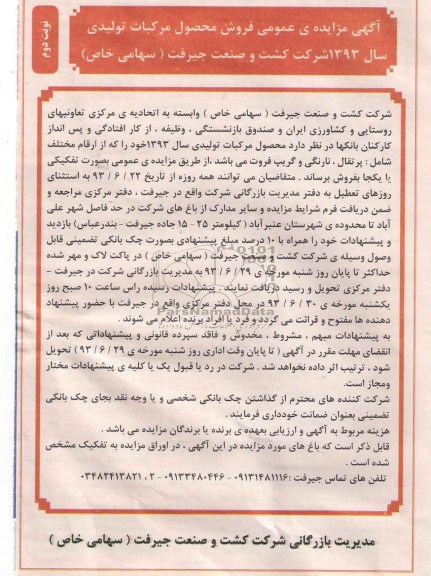 آگهی مزایده ی عمومی فروش محصول مرکبات تولیدی
سال ۱۳۹۳شرکت کشت و صنعت جیرفت ( سهامی خاص )
نوبت دوم
شرکت کشت و صنعت جیرفت ( سهامی خاص ) وابسته به اتحادیه ی مرکزی تعاونیهای
روستایی و کشاورزی ایران و صندوق بازنشستگی ، وظیفه ، از کار افتادگی و پس انداز
کارکنان بانکها در نظر دارد محصول مرکبات تولیدی سال ۱۳۹۳خود را که از ارقام مختلف
شامل : پرتقال ، نارنگی و گریپ فروت می باشد ،از طریق مزایده ی عمومی بصورت تفکیکی
یا یکجا بفروش برساند . متقاضیان می توانند همه روزه از تاریخ ۲۲ / ۶ / ۹۳ به استثنای
روزهای تعطیل به دفتر مدیریت بازرگانی شرکت واقع در جیرفت ، دفتر مرکزی مراجعه و
ضمن دریافت فرم شرایط مزایده و سایر مدارک از باغ های شرکت در حد فاصل شهر علی
آباد تا محدوده ی شهرستان عنبر آباد ( کیلومتر ۲۵ - ۱۵ جاده جیرفت - بندرعباس) بازدید
و پیشنهادات خود را همراه با ۱۰ درصد مبلغ پیشنهادی بصورت چک بانکی تضمینی قابل
وصول وسیله ی شرکت کشت و صنعت جیرفت ( سهامی خاص ) در پاکت لاک و مهر شده
حداکثر تا پایان روز شنبه مورخه ی ۲۹ / ۶ / ۹۳ به مدیریت بازرگانی شرکت در جیرفت -
دفتر مرکزی تحویل و رسید دریافت نمایند . پیشنهادات رسیده راس ساعت ۱۰ صبح روز
یکشنبه مورخه ی ۳۰ / ۶ / ۹۳ در محل دفتر مرکزی واقع در جیرفت با حضور پیشنهاد
دهنده ها مفتوح و قرائت می گردد و فرد یا افراد برنده اعلام می شوند .
به پیشنهادات مبهم ، مشروط ، مخدوش و فاقد سپرده قانونی و پیشنهاداتی که بعد از
انقضای مهلت مقرر در آگهی ( تا پایان وقت اداری روز شنبه مورخه ی ۲۹ / ۶ / ۹۳) تحویل
شود ، ترتیب اثر داده نخواهد شد . شرکت در رد یا قبول یک یا کلیه ی پیشنهادات مختار
ومجاز است.
شرکت کننده های محترم از گذاشتن چک بانکی شخصی و یا وجه نقد بجای چک بانکی
تضمینی بعنوان ضمانت خودداری فرمایند .
هزینه مربوط به آگهی و ارزیابی بعهده ی برنده یا برندگان مزایده می باشد .
قابل ذکر است که باغ های مورد مزایده در این آگهی ، در اوراق مزایده به تفکیک مشخص
شده است .
تلفن های تماس جیرفت :۰۹۱۳۱۴۸۱۱۱۶ - ۰۹۱۳۳۴۸۰۴۴۶ - ۲ ، ۰۳۴۸۲۴۱۳۸۲۱
مدیریت بازرگانی شرکت کشت و صنعت جیرفت ( سهامی خاص )
ParsNamadData